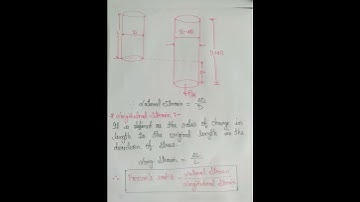 D
D-ΔD
Lateral strain = ΔD/D
* Longitudinal strain :-
It is defined as the ratio of change in
length to the original length in the
direction of stress.
Long strain = ΔL/L
∴ Poisson's ratio = Lateral strain/Longitudinal strain